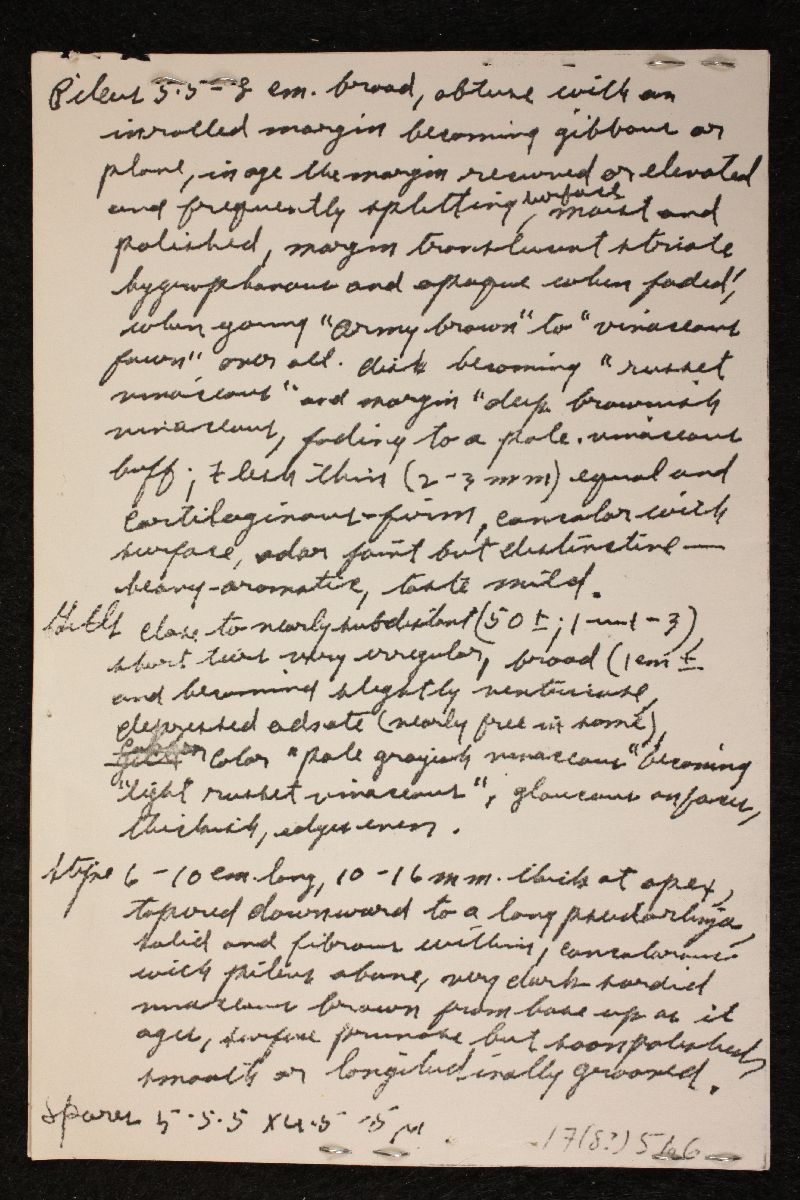 Pileus 5.5-8 cm. broad, obtuse with an
inrolled margin becoming gibbous or
plane, in age the margin recurved or elevated
and frequently splitting, surface moist and
polished, margin translucent striate
hygrophanous and opaque when faded,
when young "army brown" to "vinaceous
fawn" over all. disk becoming "russet
vinaceous" and margin "deep brownish
vinaceous, fading to a pale vinaceous
buff; flesh thin (2-3 mm) equal and
cartilaginous-firm, concolor with
surface, odor faint but distinctive —
heavy-aromatic, taste mild.
Gills close to nearly subdistant (50 ±; 1-3)
short tiers very irregular, broad (1 cm ±
and becoming slightly ventricose,
depressed adnate (nearly free in some),
color "pale grayish vinaceous" becoming
"light russet vinaceous", glaucous on faces,
thickish, edges even.
Stipe 6-10 cm. long, 10-16 mm. thick at apex,
tapered downward to a long pseudorhiza,
solid and fibrous within, concolorous
with pileus above, very dark sordid
vinaceous brown from base up as it
ages, surface pruinose but soon polished,
smooth or longitudinally grooved.
Spores 5-5.5 x 4.5-5 µ
17(8?)566